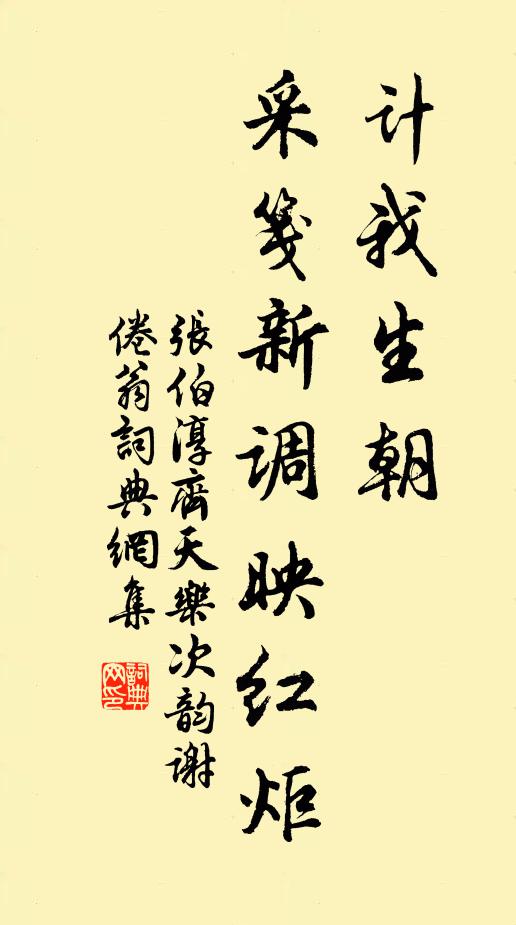 计我生朝
采笺新调映红炬
張伯淳齊天樂次韵谢
倦翁詞典網集
詞典網印